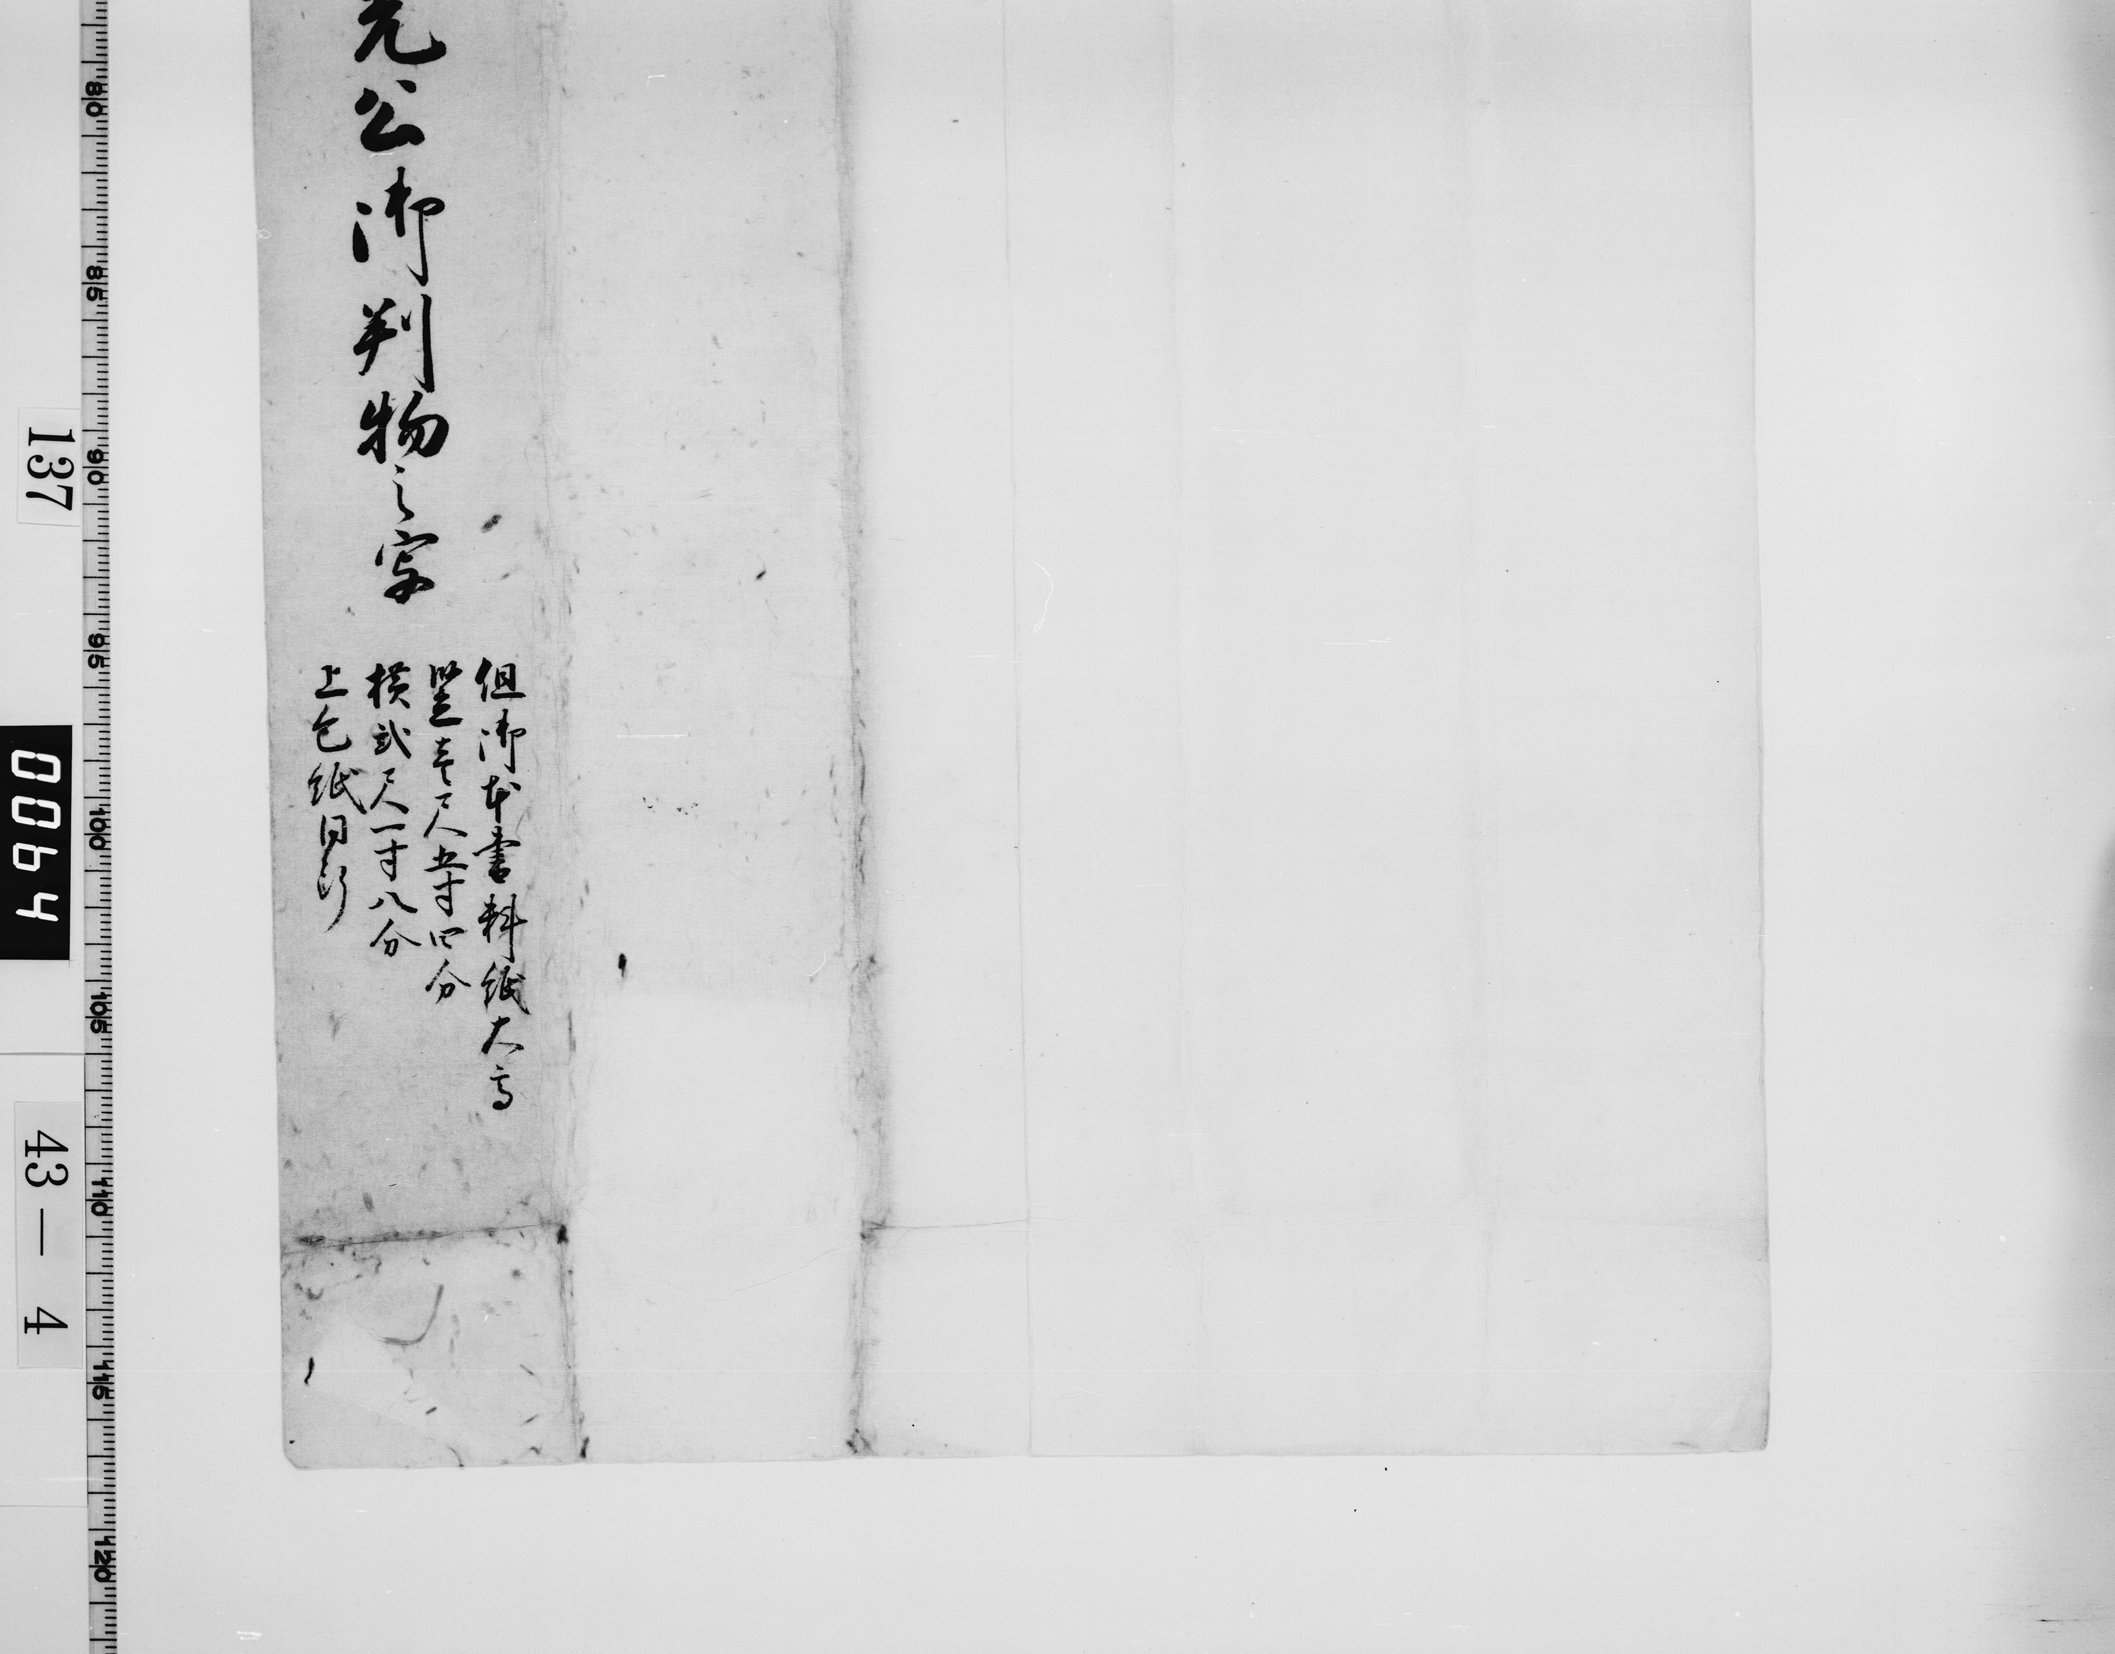 光公御判物之写
但御本書料紙大高
竪壱尺五寸四分
横弐尺一寸八分
上包紙同断
80
85
90
95
100
105
110
115
120
137
0064
43—4